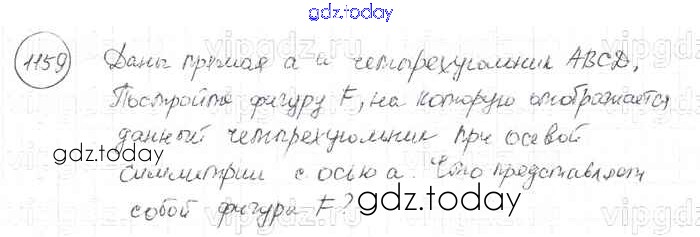 gdz.today
1159 Даны прямая a и четырехугольник ABCD.
Постройте фигуру F, на которую отображается
данный четырехугольник при осевой
gdz.today
симметрии с осью a. Что представляет
собой фигура F?
gdz.today